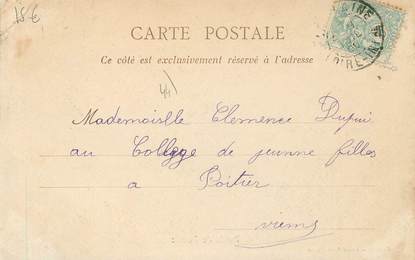 15 €
CARTE POSTALE
Ce côté est exclusivement réservé à l'adresse
44
Mademoislle Clemence Dupui
au College de jeunne filles
a Poitier
vienne